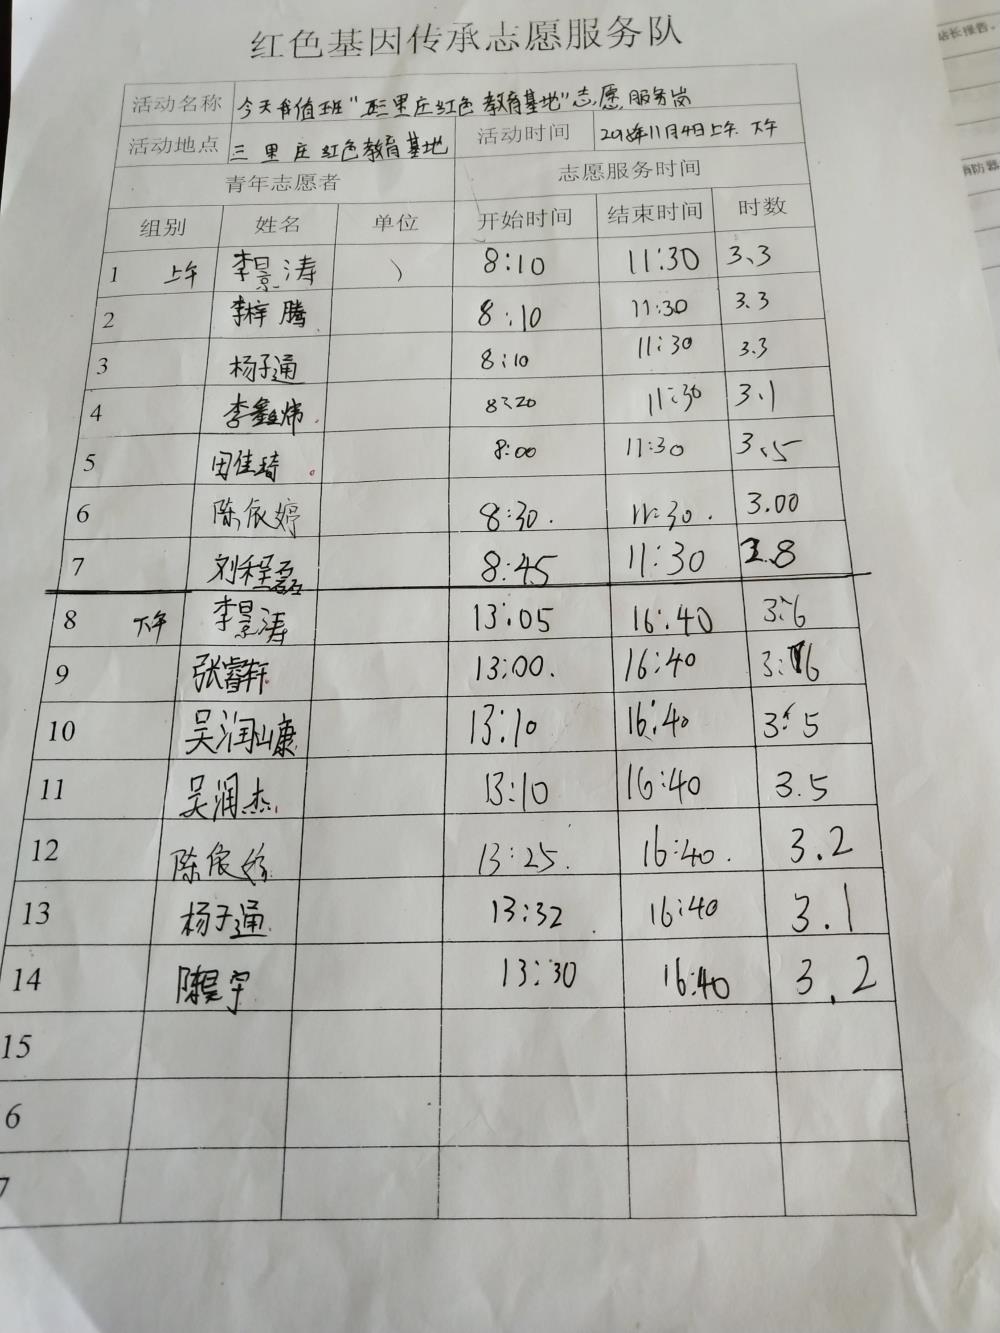 红色基因传承志愿服务队
活动名称 今天我值班"三里庄红色教育基地"志愿服务岗
活动地点 三里庄红色教育基地 活动时间 2018年11月4日上午 下午
青年志愿者 志愿服务时间
组别 姓名 单位 开始时间 结束时间 时数
1 上午 李景涛 8:10 11:30 3.3
2 李梓腾 8:10 11:30 3.3
3 杨子通 8:10 11:30 3.3
4 李鑫炜 8:20 11:30 3.1
5 田佳琦 8:00 11:30 3.5
6 陈依婷 8:30. 11:30. 3.00
7 刘程磊 8:45 11:30 2.8
8 下午 李景涛 13:05 16:40 3.6
9 张睿轩 13:00. 16:40 3.6
10 吴润康 13:10 16:40 3.5
11 吴润杰 13:10 16:40 3.5
12 陈依婷 13:25. 16:40. 3.2
13 杨子通 13:32 16:40 3.1
14 陈昊宇 13:30 16:40 3.2
15
6
7
站长报告、
消防器